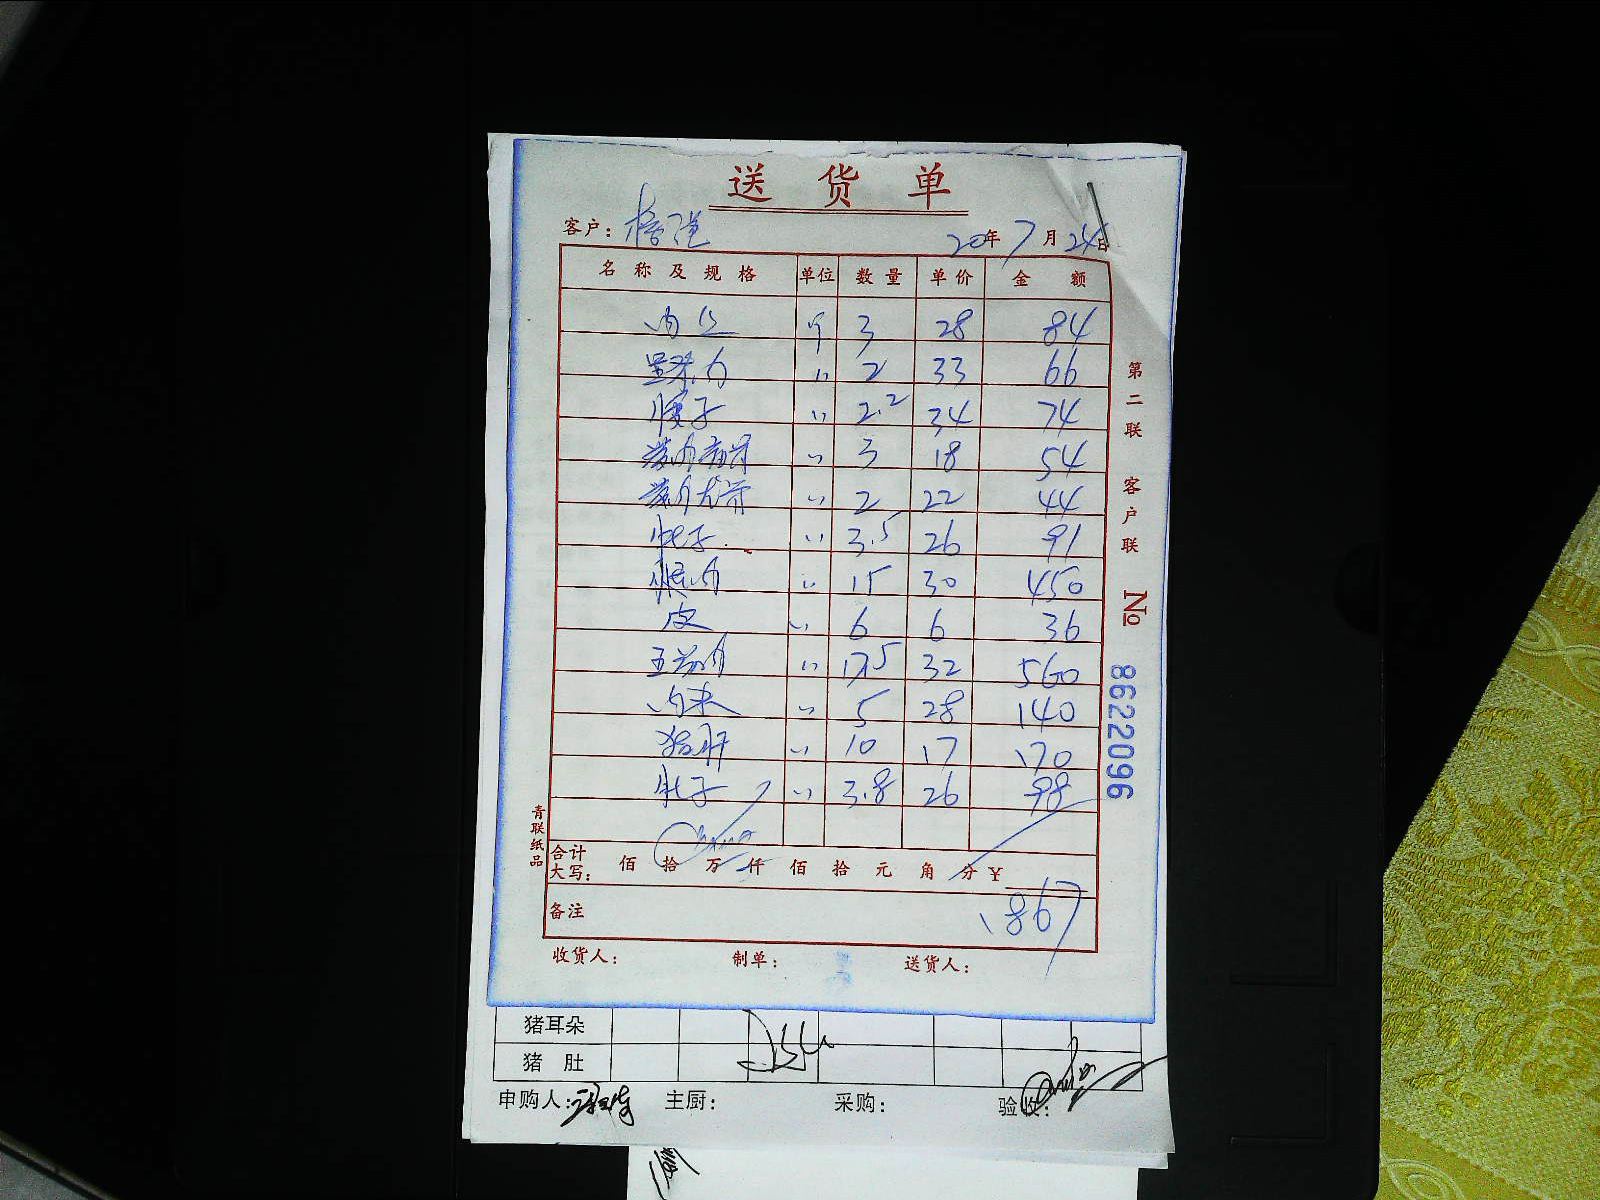 送货单
客户： 20年7月24日
名称及规格 单位 数量 单价 金额
肉丝 斤 3 28 84
里脊肉 〃 2 33 66
腱子 〃 2.2 34 74
〃 3 18 54
〃 2 22 44
肚子 〃 3.5 26 91
腿肉 〃 15 30 450
皮 〃 6 6 36
五花肉 〃 17.5 32 560
肉末 〃 5 28 140
猪肝 〃 10 17 170
肚子 〃 3.8 26 98
合计大写： 佰 拾 万 仟 佰 拾 元 角 分 ¥
1867
备注
收货人： 制单： 送货人：
第二联 客户联
No 8622096
青联纸品
猪耳朵
猪 肚
申购人： 主厨： 采购： 验收：